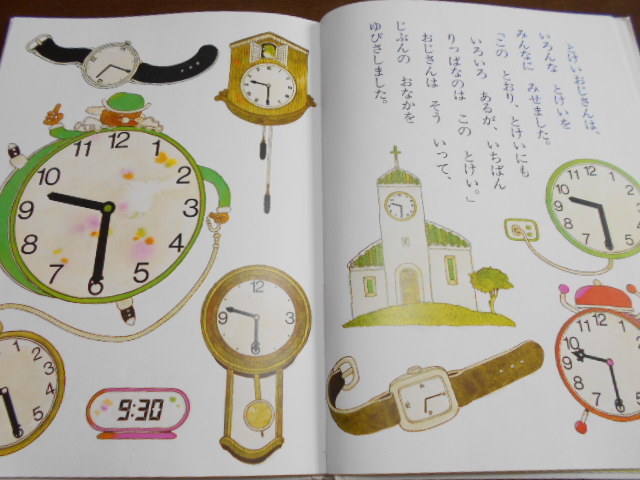 とけいおじさんは、
いろんな とけいを
みんなに みせました。
「この とおり、とけいにも
いろいろ あるが、いちばん
りっぱなのは この とけい。」
おじさんは そう いって、
じぶんの おなかを
ゆびさしました。
11 12 1
10 2
9 3
8 4
7 6 5
12
9 3
6
9:30
12 1
2
3
4
5
6
12 1
11 2
10 3
9 4
8 5
7 6
11 12
10
9
8
7 6 5